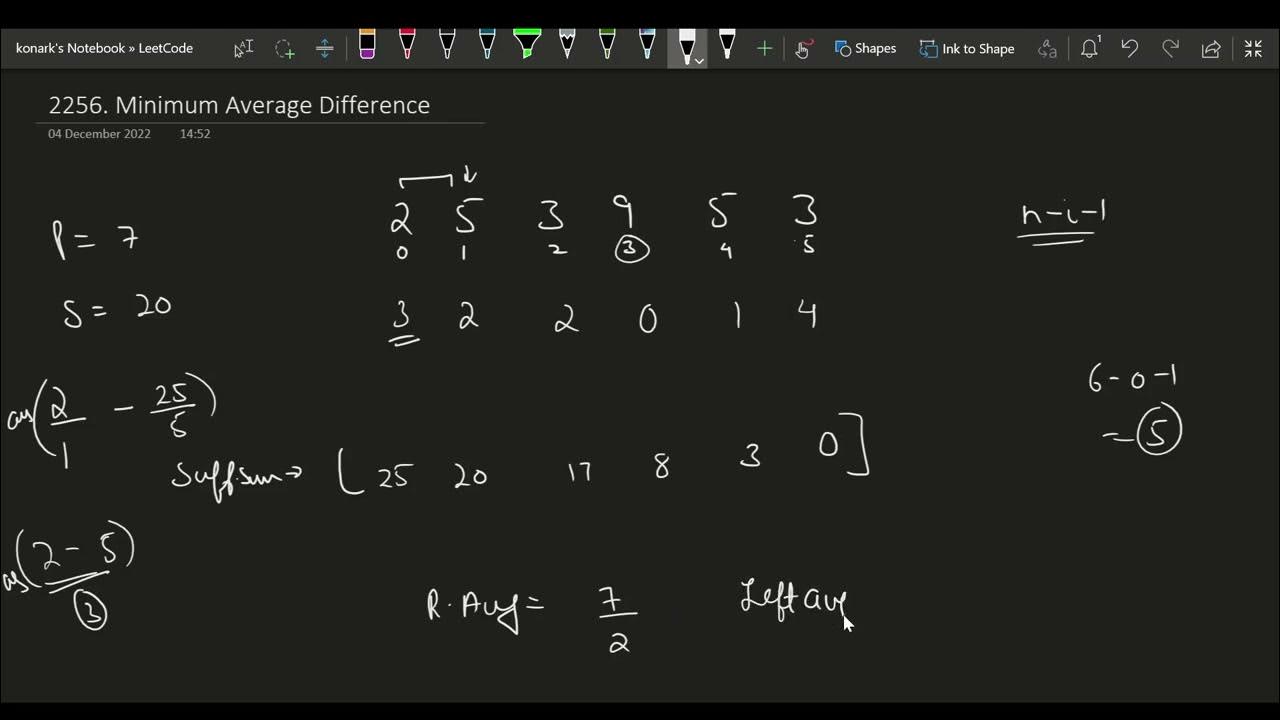 konark's Notebook » LeetCode
Shapes
Ink to Shape
2256. Minimum Average Difference
04 December 2022 14:52
2 5 3 9 5 3
n-i-1
0 1 2 3 4 5
P = 7
S = 20
3 2 2 0 1 4
6-0-1
= 5
2/1 - 25/5
Suff.sum → [ 25 20 17 8 3 0 ]
(2 - 5)
3
R. Avg = 7/2
Left avg